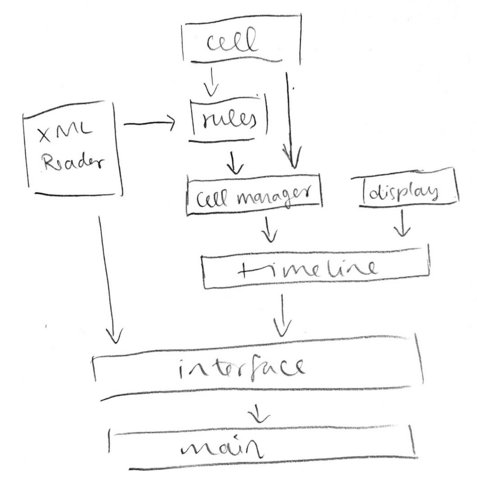 cell
XML
Reader
rules
cell manager
display
timeline
interface
main